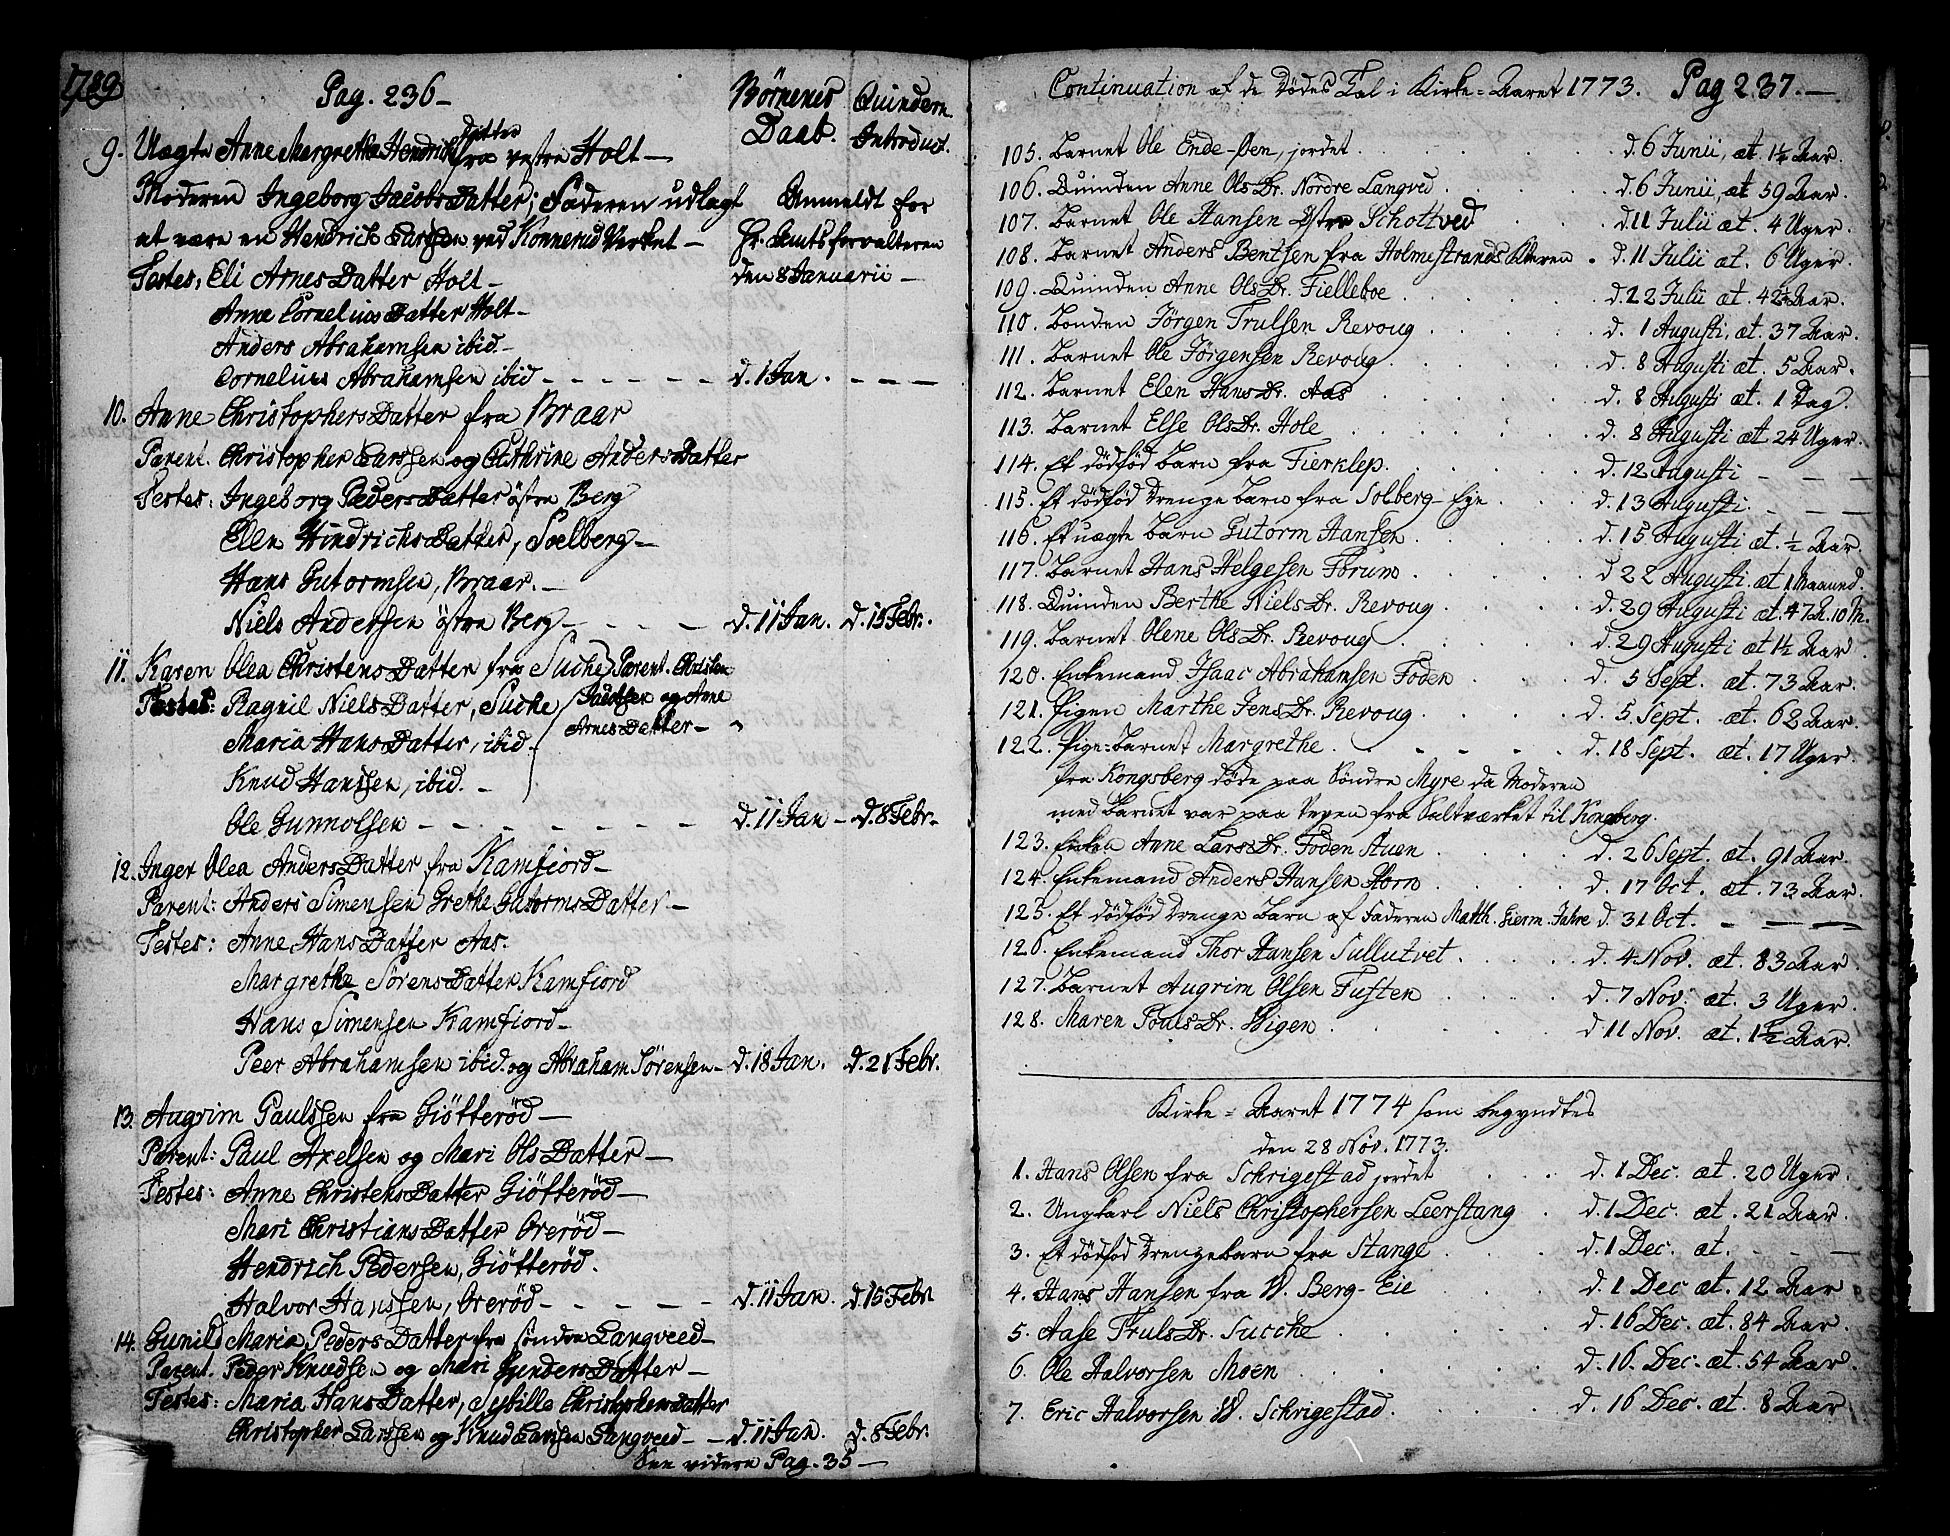 1789
Pag. 236 — Börnenes Daab. Quindern. Introduct.
9. Uægte Anne Margrethe Hendrichsdatter fra vestre Holt —
Moderen Ingeborg JacobsDatter; Faderen udlagt Anmeldt for
at være en Hendrich Larssen ved Konnerud Verket — Hr. Amtsforvalteren
Testes, Eli ArnesDatter Holt — den 8 Januarii —
Anne CorneliusDatter Holt —
Anders Abrahamsen ibid. —
Cornelius Abrahamsen ibid — — — — — — d. 1 Jan. — — —
10. Anne ChristophersDatter fra Braar
Parent. Christopher Larssen og Cathrine AndersDatter
Testes: Ingeborg PedersDatter östre Berg
Elen HindrichsDatter, Soelberg —
Hans Gutormsen, Braar. —
Niels Andersen östre Berg — — — — — d. 11 Jan. d. 15 Febr.
11. Karen Olea ChristensDatter fra Suche, Parent. Christen
Testes: Ragnil NielsDatter, Suche og Anne
Maria HansDatter, ibid — ArnesDatter —
Knud Hanssen, ibid. —
Ole Gunnolsen — — — — — — — d. 11 Jan — d. 8 Febr.
12. Inger Olea AndersDatter fra Kamfiord —
Parent: Anders Simensen Grethe GutormsDatter —
Testes: Anne HansDatter Aas.
Margrethe SörensDatter Kamfiord
Hans Simensen Kamfiord —
Peer Abrahamsen ibid. og Abraham Sörensen — d. 18 Jan. d. 21 Febr.
13. Augrim Paulssen fra Giötteröd —
Parent: Paul Axelsen og Mari OlsDatter —
Testes: Anne ChristensDatter Giötteröd —
Mari ChristiansDatter Oreröd —
Hendrich Pedersen, Giötteröd.
Halvor Hanssen, Oreröd — — — — — d. 11 Jan. d. 15 Febr
14. Gunild Maria PedersDatter fra söndre Langveed —
Parent. Peder Knudsen og Mari GundersDatter —
Testes: Maria HansDatter, Sybille Christophersdatter
Christopher Larssen og Knud Larssen Langveed — — d. 11 Jan. d. 8 Febr.
See videre Pag. 35 —
Continuation af de Dödes Tal i Kirke-Aaret 1773. Pag 237. —
105. Barnet Ole Ende-Öen, jordet . . . d. 6 Junii, æt. 1½ Aar.
106. Quinden Anne OlsDr. Nordre Langved . . . d. 6 Junii, æt 59 Aar.
107. Barnet Ole Hansen Östre Schottved . . d. 11 Julii æt. 4 Uger.
108. Barnet Anders Bentsen fra Holmestrands . d. 11 Julii æt. 6 Uger.
109. Quinden Anne OlsDr. Fielleboe . . . d. 22 Julii æt. 42 Aar.
110. Bonden Jörgen Trulsen Revoug . . . d. 1 Augusti, æt. 37 Aar.
111. Barnet Ole Jörgensen Revoug . . . d. 8 Augusti æt. 5 Aar.
112. Barnet Elen HansDr. Aas . . . d. 8 Augusti æt. 1 Dag.
113. Barnet Else OlsDr. Hole . . . d. 8 Augusti æt. 24 Uger.
114. Et dödföd Barn fra Fierklep. . . . d. 12 Augusti — — —
115. Et dödföd Drenge Barn fra Solberg-Eye . . d. 13 Augusti. — — —
116. Et uægte Barn Gutorm Hansen . . . d. 15 Augusti æt. ½ Aar.
117. Barnet Hans Helgesen Forum . . . d 22 Augusti. æt 1 Maaned.
118. Quinden Berthe NielsDr. Revoug . . . d. 29 Augusti æt. 47 A. 10 M.
119. Barnet Olene OlsDr. Revoug . . . d. 29 Augusti æt 1½ Aar.
120. Enkemand Isaac Abrahamsen Foden . . . d. 5 Sept. æt. 73 Aar.
121. Pigen Marthe JensDr. Revoug . . . d. 5 Sept. æt. 62 Aar.
122. Pige-Barnet Margrethe . . . d. 18 Sept. æt. 17 Uger.
fra Kongsberg döde paa Söndre Myre da Moderen
med Barnet var paa Veyen fra Saltværket til Kongsberg.
123. Enken Anne LarsDr. Foden Stuen . . . d. 26 Sept. æt. 91 Aar.
124. Enkemand Anders Hansen Horn . . . d. 17 Oct. æt. 73 Aar.
125. Et dödföd Drenge Barn af Faderen Matth. Jahre d. 31 Oct. — — —
126. Enkemand Thor Hansen Sullutvet . . . d. 4 Nov. æt. 83 Aar.
127. Barnet Augrim Olsen Tuften . . . d. 7 Nov. æt. 3 Uger.
128. Maren PoulsDr. Höigen . . . d 11 Nov. æt. 1½ Aar.
Kirke-Aaret 1774 som begyndtes
den 28 Nov. 1773.
1. Hans Olsen fra Schrigestad jordet . . d. 1 Dec. æt. 20 Uger.
2. Ungkarl Niels Christophersen Leerstang . d. 1 Dec. æt. 21 Aar.
3. Et dödföd Drengebarn fra Stange . . . d. 1 Dec. æt. — — —
4. Hans Hansen fra W. Berg-Eie . . . d. 1 Dec æt. 12 Aar
5. Aase TrulsDr. Sucche . . . d. 16 Dec. æt. 84 Aar.
6. Ole Halvorsen Moen . . . d. 16. Dec. æt. 54 Aar.
7. Eric Halvorsen W. Schrigestad . . . d. 16 Dec. æt. 8 Aar.